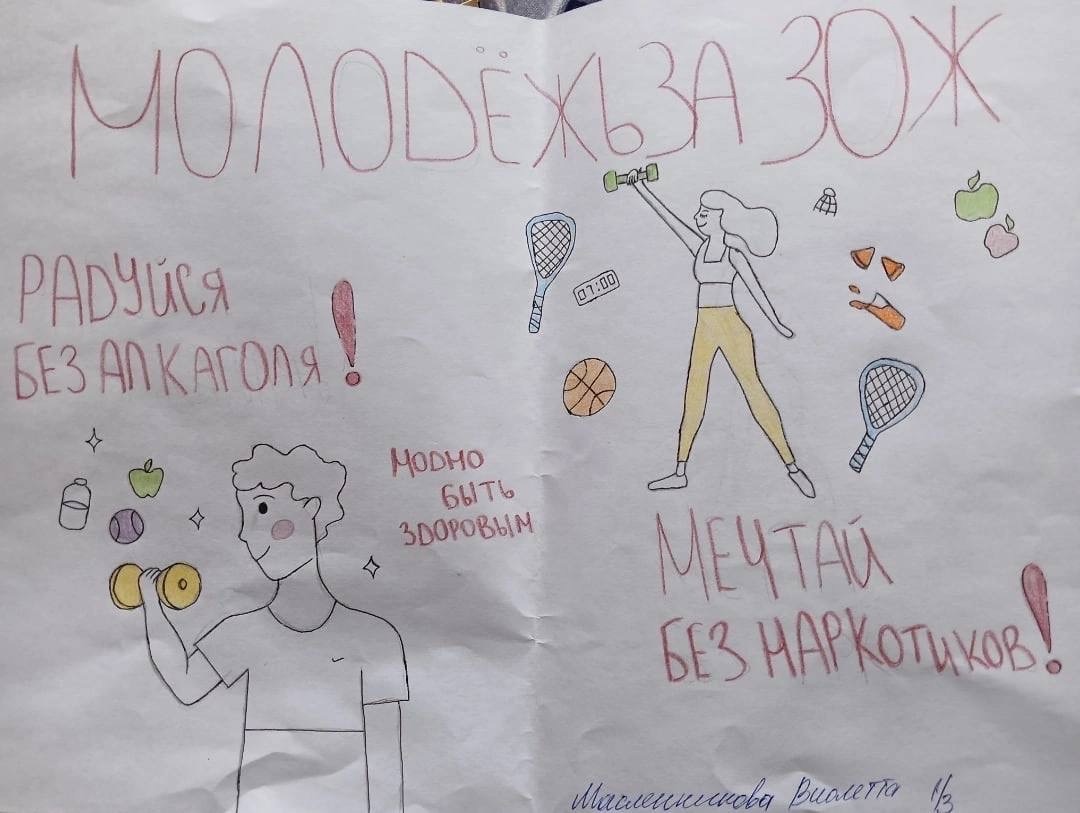 МОЛОДЁЖЬ ЗА ЗОЖ
РАДУЙСЯ
БЕЗ АЛКАГОЛЯ!
07:00
МОДНО
БЫТЬ
ЗДОРОВЫМ
МЕЧТАЙ
БЕЗ НАРКОТИКОВ!
Масленникова Виолетта 1/3